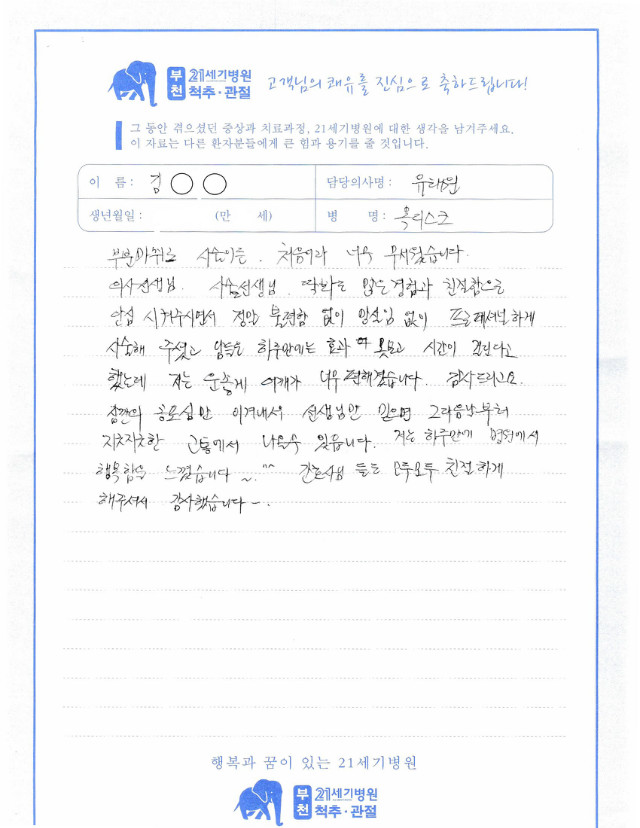 부천 21세기병원 척추·관절 고객님의 쾌유를 진심으로 축하드립니다!
그 동안 겪으셨던 증상과 치료과정, 21세기병원에 대한 생각을 남겨주세요.
이 자료는 다른 환자분들에게 큰 힘과 용기를 줄 것입니다.
이 름 : 김○○ 담당의사명 : 유태원
생년월일 : (만 세) 병 명 : 목디스크
부분마취로 시술이든. 처음이라 너무 무서웠습니다.
의사선생님. 시술선생님. 많은경험과 친절함으로
안심 시켜주시면서 정말 불편함 없이 망설임 없이 프로페셔널하게
시술해 주셨고 남들은 하루만에는 효과 못보고 시간이 걸린다고
했는데 저는 운좋게 어깨가 너무 편해졌습니다. 감사드리고요.
잠깐의 공포심만 이겨내서 선생님만 믿으면 그다음날부터
지긋지긋한 고통에서 나올수 있읍니다. 저는 하루만에 병원에서
행복함을 느꼈습니다~.^^ 간호사님 들도 모두모두 친절하게
해주셔서 감사했습니다~.
행복과 꿈이 있는 21세기병원
부천 21세기병원 척추·관절